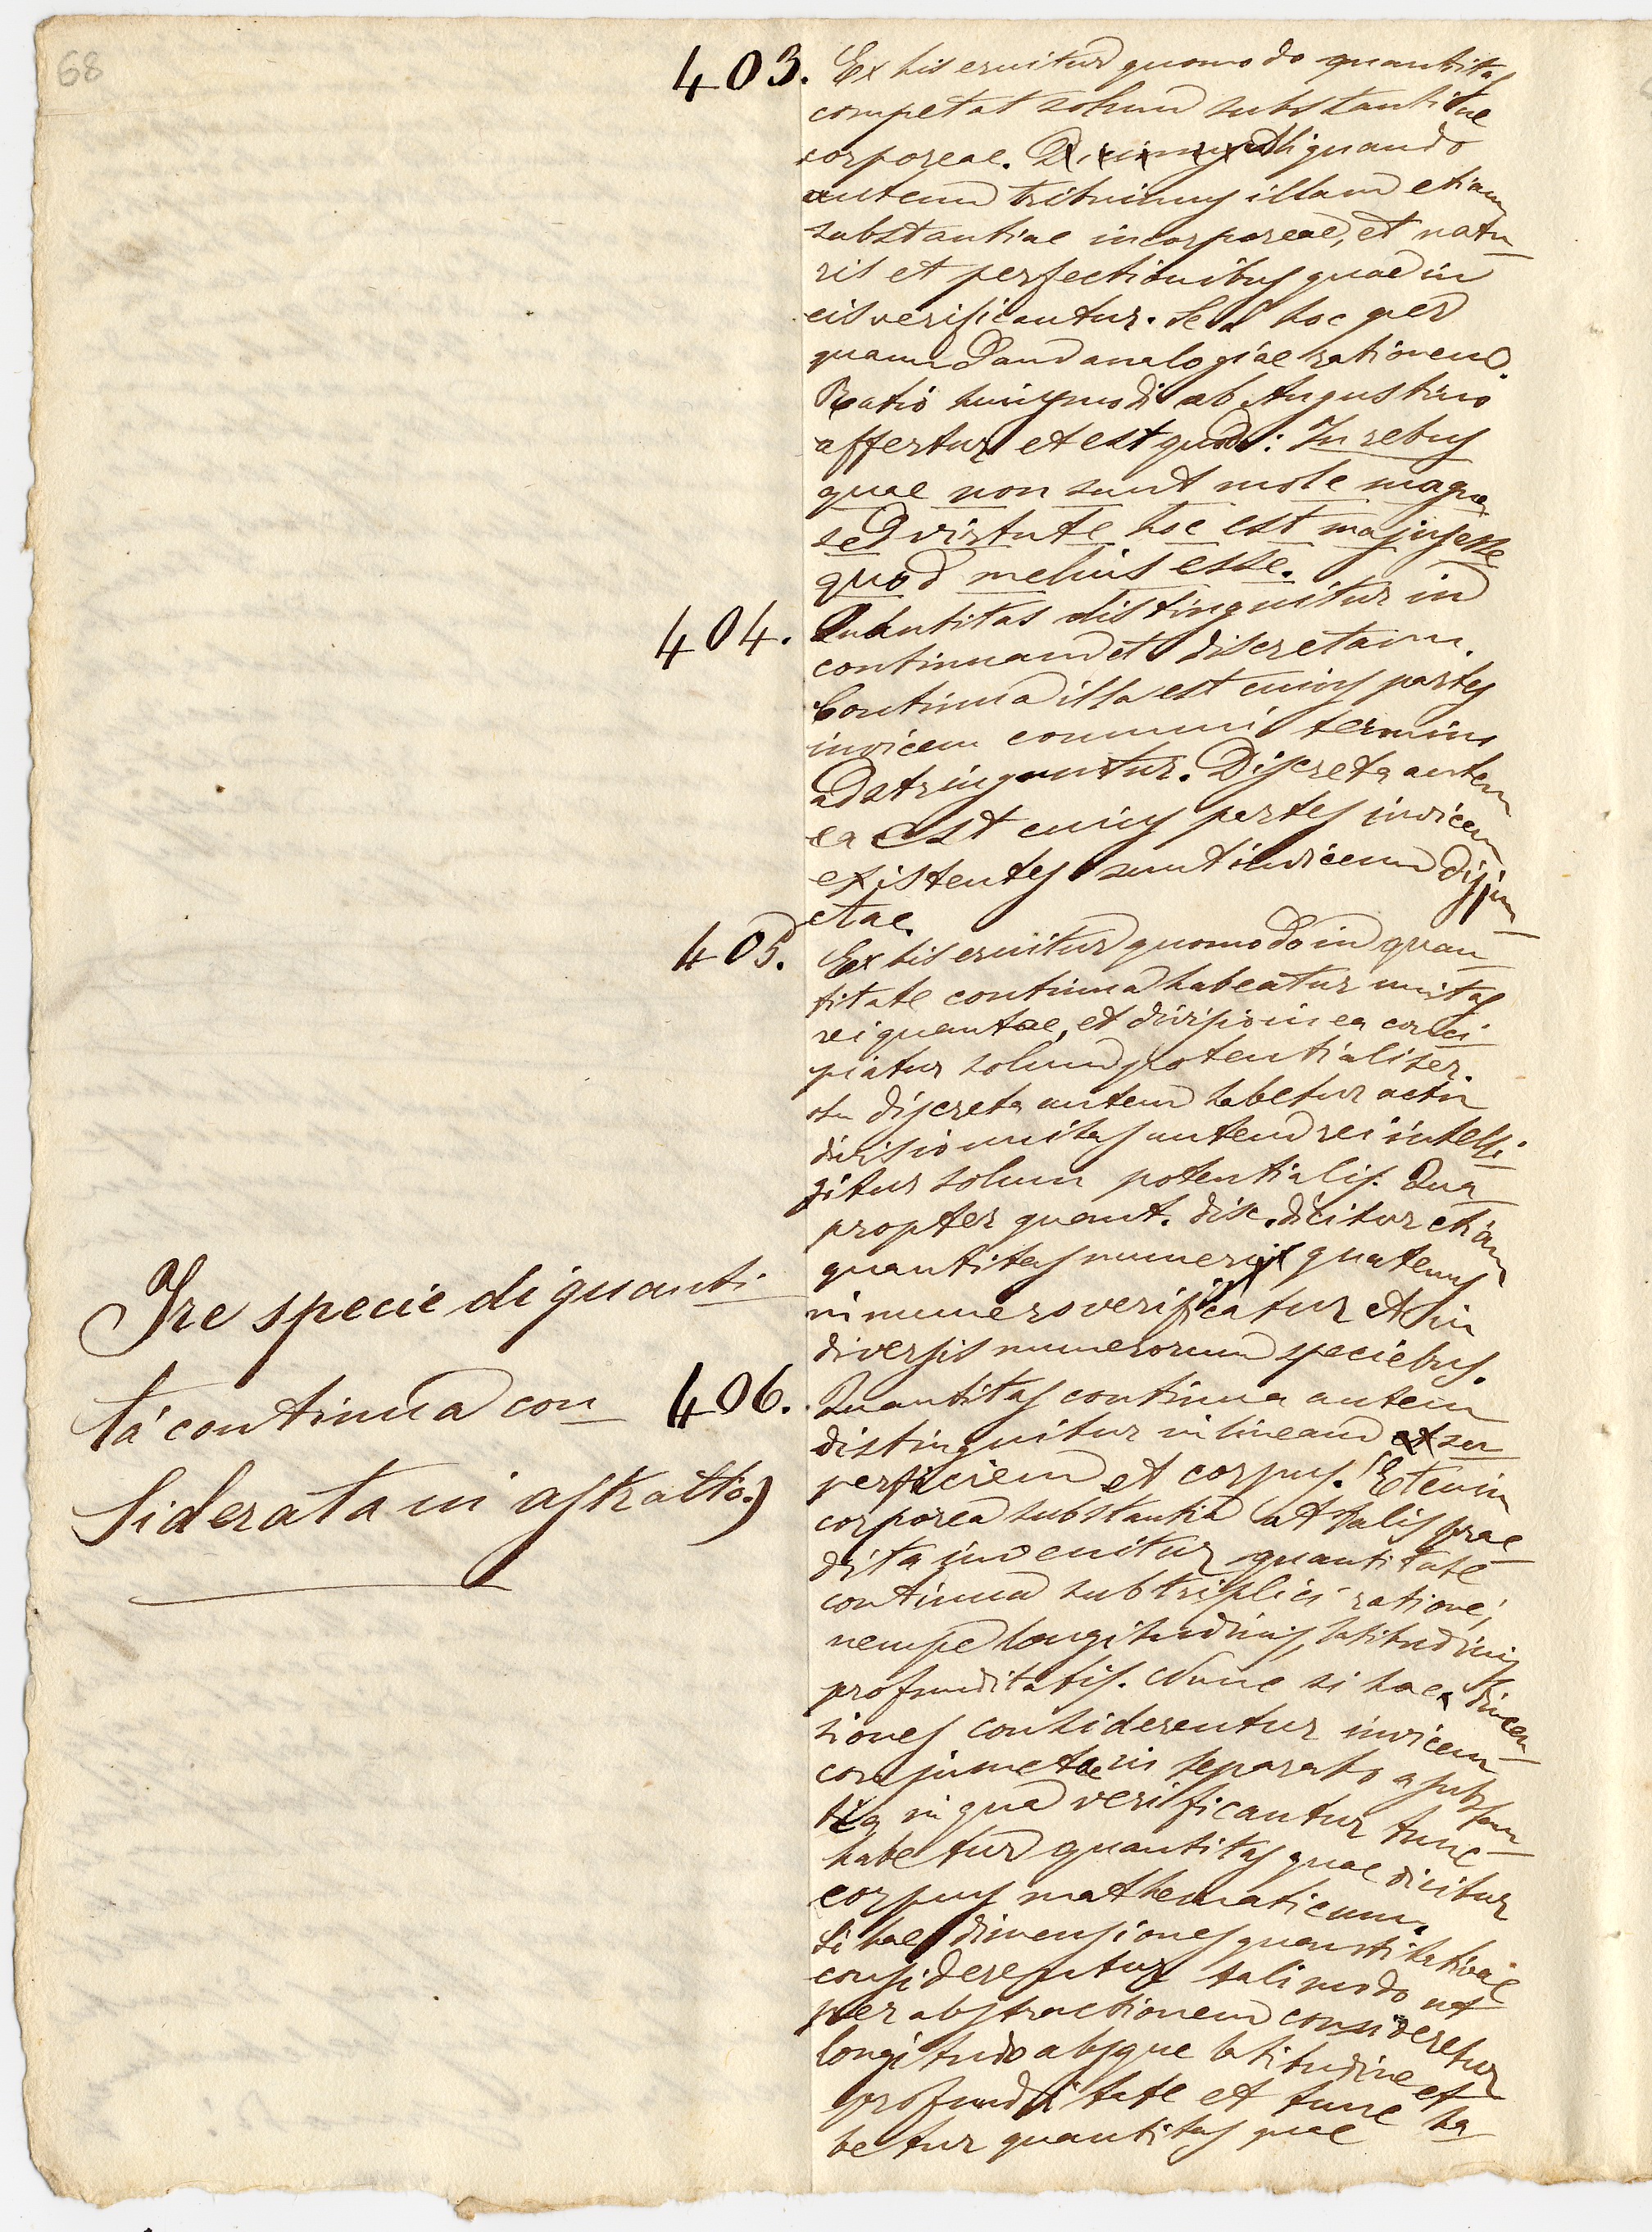 68
403. Ex his eruitur quomodo quantitas
competat solum substantiae
corporeae. Aliquando
autem tribuimus illam etiam
substantiae incorporeae, et natu-
ris et perfectionibus quae in
eis verificantur. Sed hoc per
quamdam analogiae rationem.
Ratio huiusmodi ab Augustino
affertur et est quod: In rebus
quae non sunt mole magna
sed virtute hoc est majus esse
quod melius esse.
404. Quantitas distinguitur in
continuam et discretam.
Continua illa est cuius partes
invicem communi termino
adstringuntur. Discreta autem
ea est cuius partes invicem
existentes sunt invicem disjun-
ctae.
405. Ex his eruitur quomodo in quan-
titate continua habeatur unitas
rei quantae, et divisio in ea conci-
piatur solum potentialiter.
In discreta autem habetur actu
divisio unitas autem rei intelli-
gitur solum potentialis. Qua-
propter quant. disc. dicitur etiam
quantitas numeri quatenus
in numero verificatur et in
diversis numerorum speciebus.
Tre specie di quanti-
tá continua con-
siderata in astratto)
406. Quantitas continua autem
distinguitur in lineam et su-
perficiem et corpus. Etenim
corporea substantia ut talis prae-
dita invenitur quantitate
continua sub triplici ratione,
nempe longitudinis, latitudinis
profunditatis. Nunc si hae dimen-
siones considerentur invicem
conjunctae in separato a substan-
tia in qua verificantur tunc
habetur quantitas quae dicitur
corpus mathematicum.
Si hae dimensiones quantitativae
considerentur tali modo ut
per abstractionem consideretur
longitudo absque latitudine et
profunditate et tunc ha-
betur quantitas quae